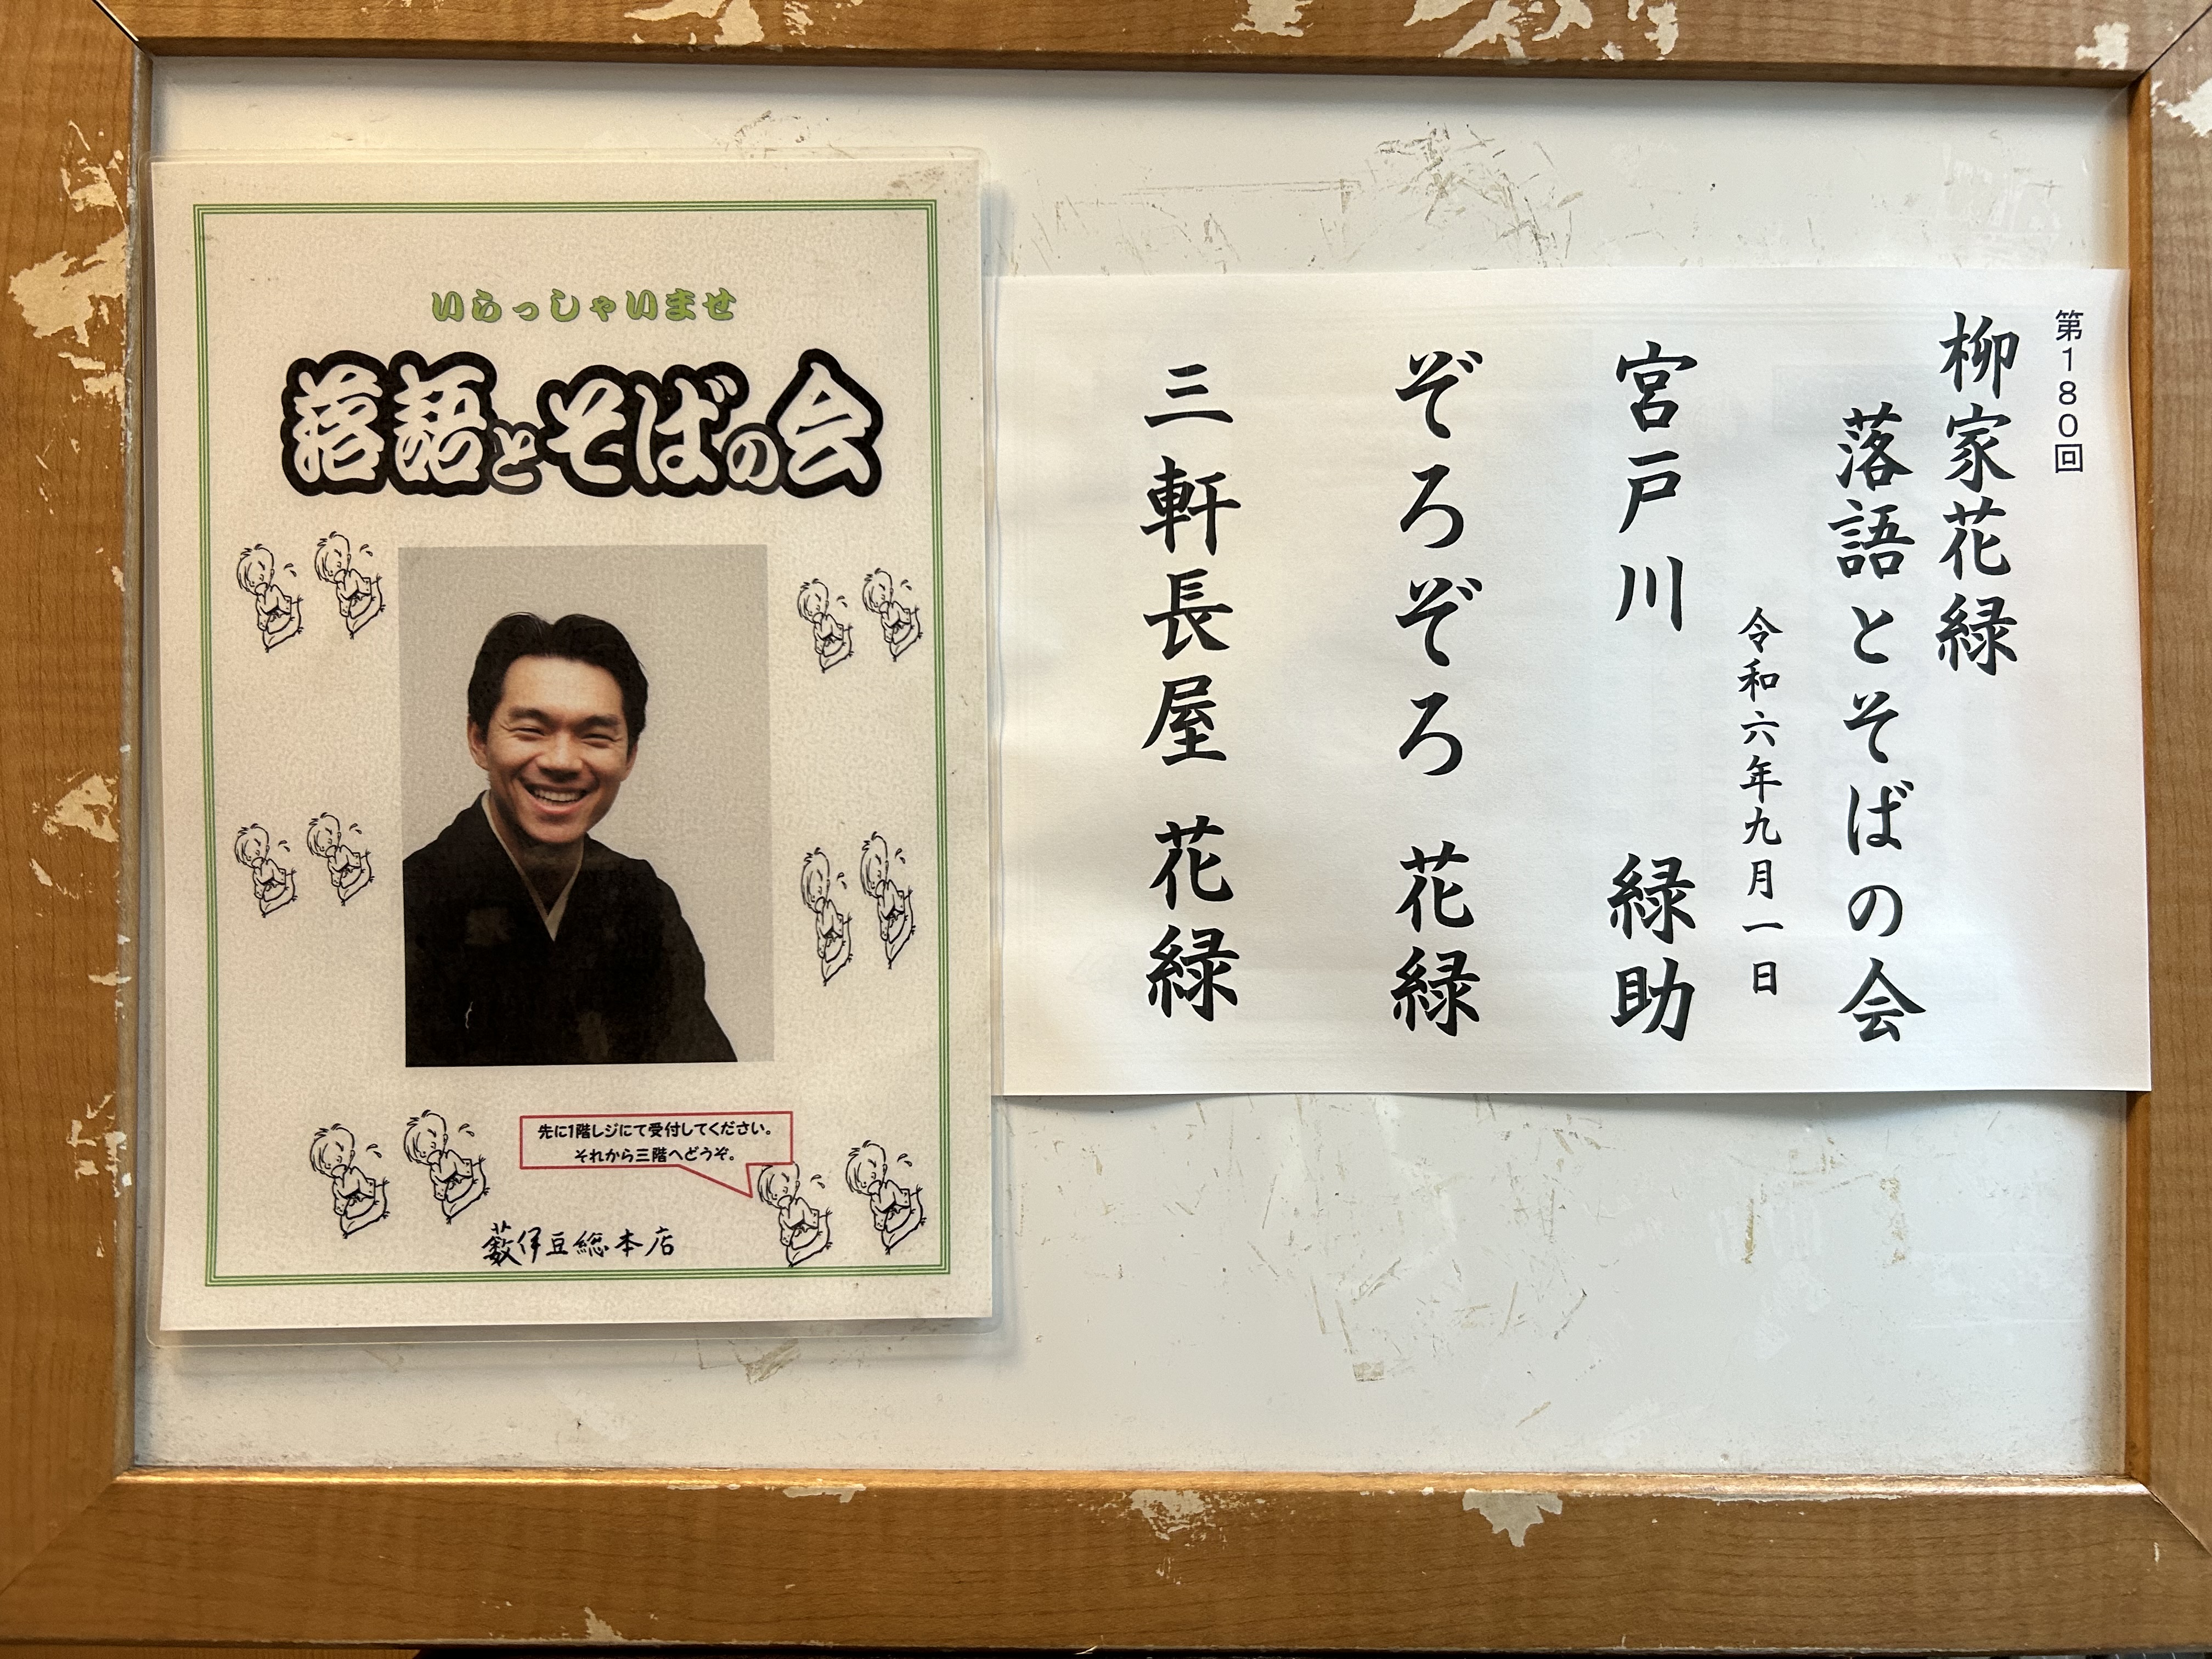 いらっしゃいませ
落語とそばの会
先に1階レジにて受付してください。
それから三階へどうぞ。
藪伊豆総本店
第180回
柳家花緑
落語とそばの会
令和六年九月一日
宮戸川 緑助
ぞろぞろ 花緑
三軒長屋 花緑